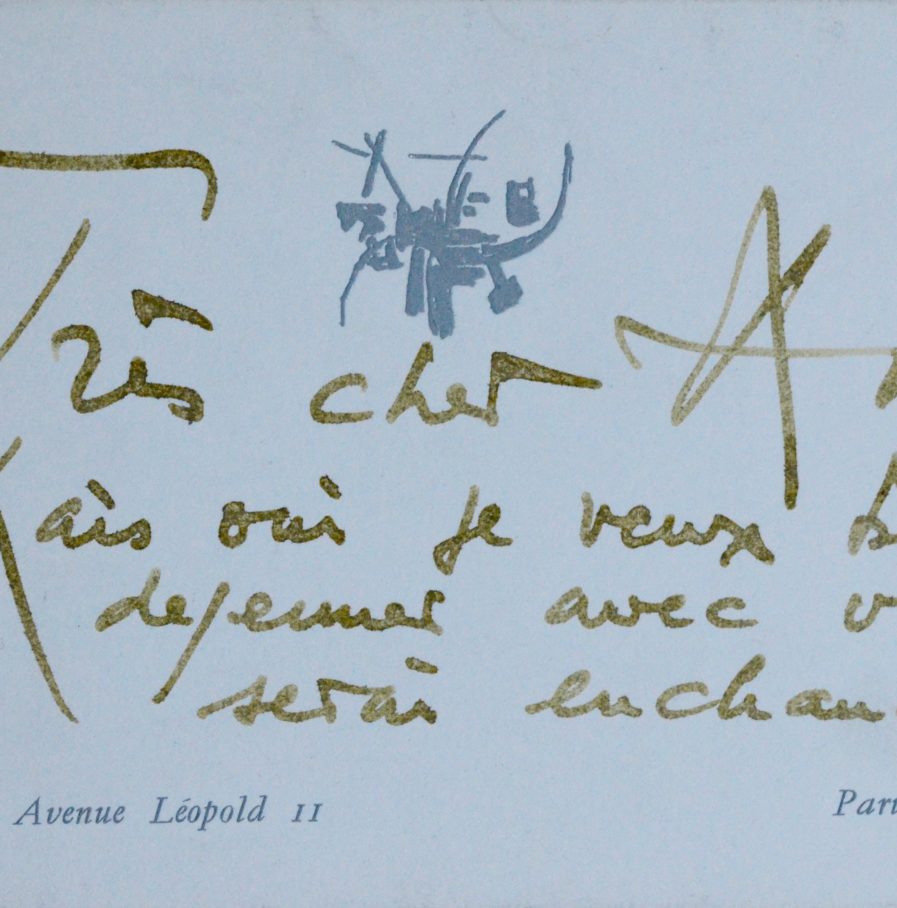 Très cher A
Mais oui je veux b
dejeuner avec v
serai enchan
Avenue Léopold II
Pari